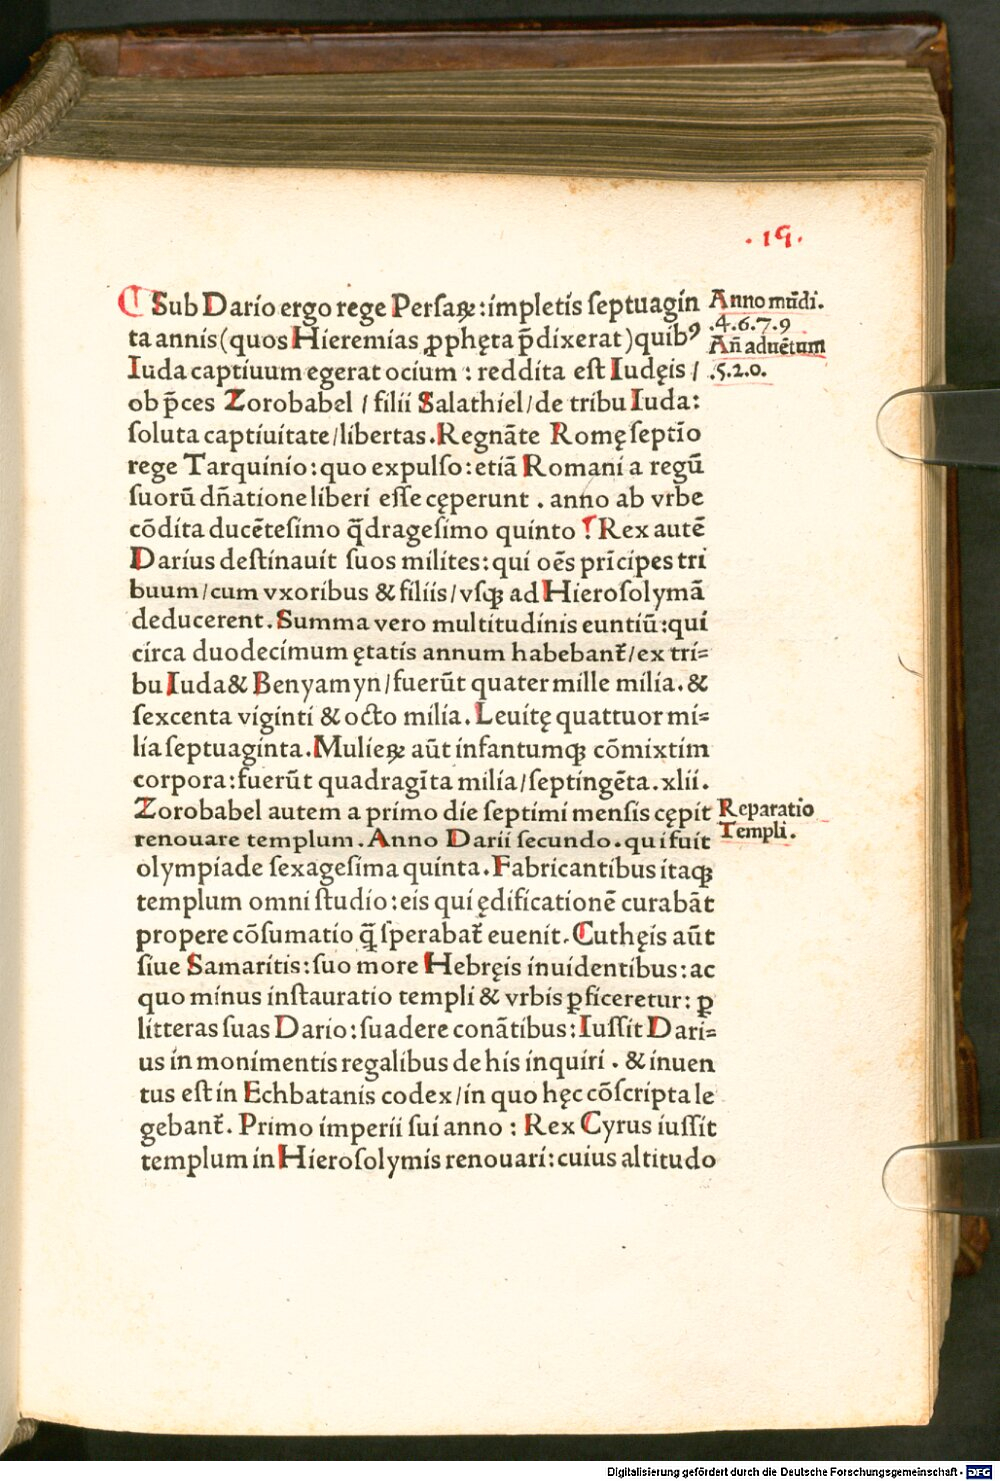 .19.
Sub Dario ergo rege Persaꝝ:impletis septuagin
ta annis(quos Hieremias ꝓphęta p̄dixerat)quibꝰ
Iuda captiuum egerat ocium : reddita est Iudęis /
ob p̄ces Zorobabel / filii Salathiel/de tribu Iuda:
soluta captiuitate/libertas.Regnāte Romę septīo
rege Tarquinio:quo expulso:etiā Romani a regū
suorū dn̄atione liberi esse cęperunt . anno ab vrbe
cōdita ducētesimo q̄dragesimo quinto ¶ Rex autē
Darius destinauit suos milites:qui oēs prīcipes tri
buum/cum vxoribus & filiis/vsqꝫ ad Hierosolymā
deducerent.Summa vero multitudinis euntiū:qui
circa duodecimum ętatis annum habebant̄/ex tri=
bu Iuda& Benyamyn/fuerūt quater mille milia.&
sexcenta viginti & octo milia.Leuitę quattuor mi=
lia septuaginta.Mulieꝝ aūt infantumqꝫ cōmixtim
corpora:fuerūt quadragīta milia/septingēta.xlii.
Zorobabel autem a primo die septimi mensis cępit
renouare templum.Anno Darii secundo.qui fuit
olympiade sexagesima quinta.Fabricantibus itaqꝫ
templum omni studio:eis qui ędificationē curabāt
propere cōsumatio q̄ sperabat̄ euenit.Cuthęis aūt
siue Samaritis:suo more Hebręis inuidentibus:ac
quo minus instauratio templi & vrbis ꝑficeretur: ꝑ
litteras suas Dario:suadere conātibus:Iussit Dari=
us in monimentis regalibus de his inquiri . & inuen
tus est in Echbatanis codex/in quo hęc cōscripta le
gebant̄. Primo imperii sui anno : Rex Cyrus iussit
templum in Hierosolymis renouari:cuius altitudo
Anno mūdi.
.4.6.7.9
An̄ aduētum
.5.2.0.
Reparatio
Templi.
Digitalisierung gefördert durch die Deutsche Forschungsgemeinschaft - DFG